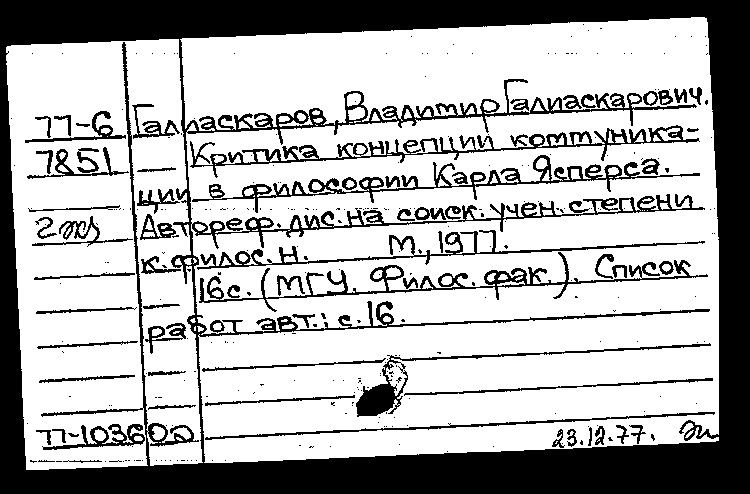 77-6 Галиаскаров, Владимир Галиаскарович.
7851 Критика концепции коммуника-
ции в философии Карла Ясперса.
2 экз Автореф. дис. на соиск. учен. степени
к. филос. н. М., 1977.
16 с. (МГУ. Филос. фак.). Список
работ авт.: с. 16.
77-10360
23.12.77.